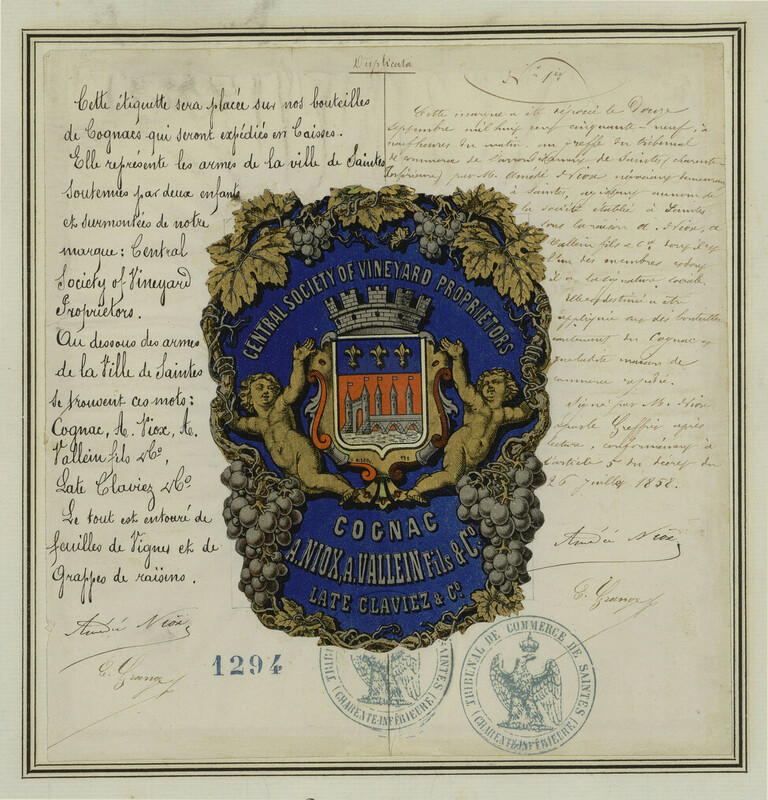 Duplicata
Cette étiquette sera placée sur nos bouteilles
de Cognacs qui seront expédiés en Caisses.
Elle représente les armes de la ville de Saintes
soutenues par deux enfants
et surmontées de notre
marque : Central
Society of Vineyard
Proprietors.
Au dessous des armes
de la Ville de Saintes
se trouvent ces mots :
Cognac, A. Niox, A.
Vallein fils & Co,
Late Claviez & Co
Le tout est entouré de
feuilles de Vignes et de
Grappes de raisins.
Amédée Niox
1294
CENTRAL SOCIETY OF VINEYARD PROPRIETORS
COGNAC
A. NIOX, A. VALLEIN Fils & Co
LATE CLAVIEZ & Co
Cette marque a été déposée le Douze
Septembre mil huit cent cinquante-neuf, à
neuf heures du matin, au greffe du tribunal
de Commerce de l'arrondissement de Saintes (Charente
Inférieure) par M. Amédée Niox négociant demeurant
à Saintes, agissant au nom de
la société établie à Saintes
sous la raison A. Niox, A.
Vallein fils & Co dont il est
l'un des membres et dont
il a la signature sociale.
Elle est destinée à être
appliquée sur des bouteilles
contenant du Cognac
maison de
commerce
Signé par M. Niox
après
lecture, conformément à
l'article 5 du décret du
26 juillet 1858.
Amédée Niox
TRIBUNAL DE COMMERCE DE SAINTES
(CHARENTE-INFÉRIEURE)
TRIBUNAL DE COMMERCE DE SAINTES
(CHARENTE-INFÉRIEURE)